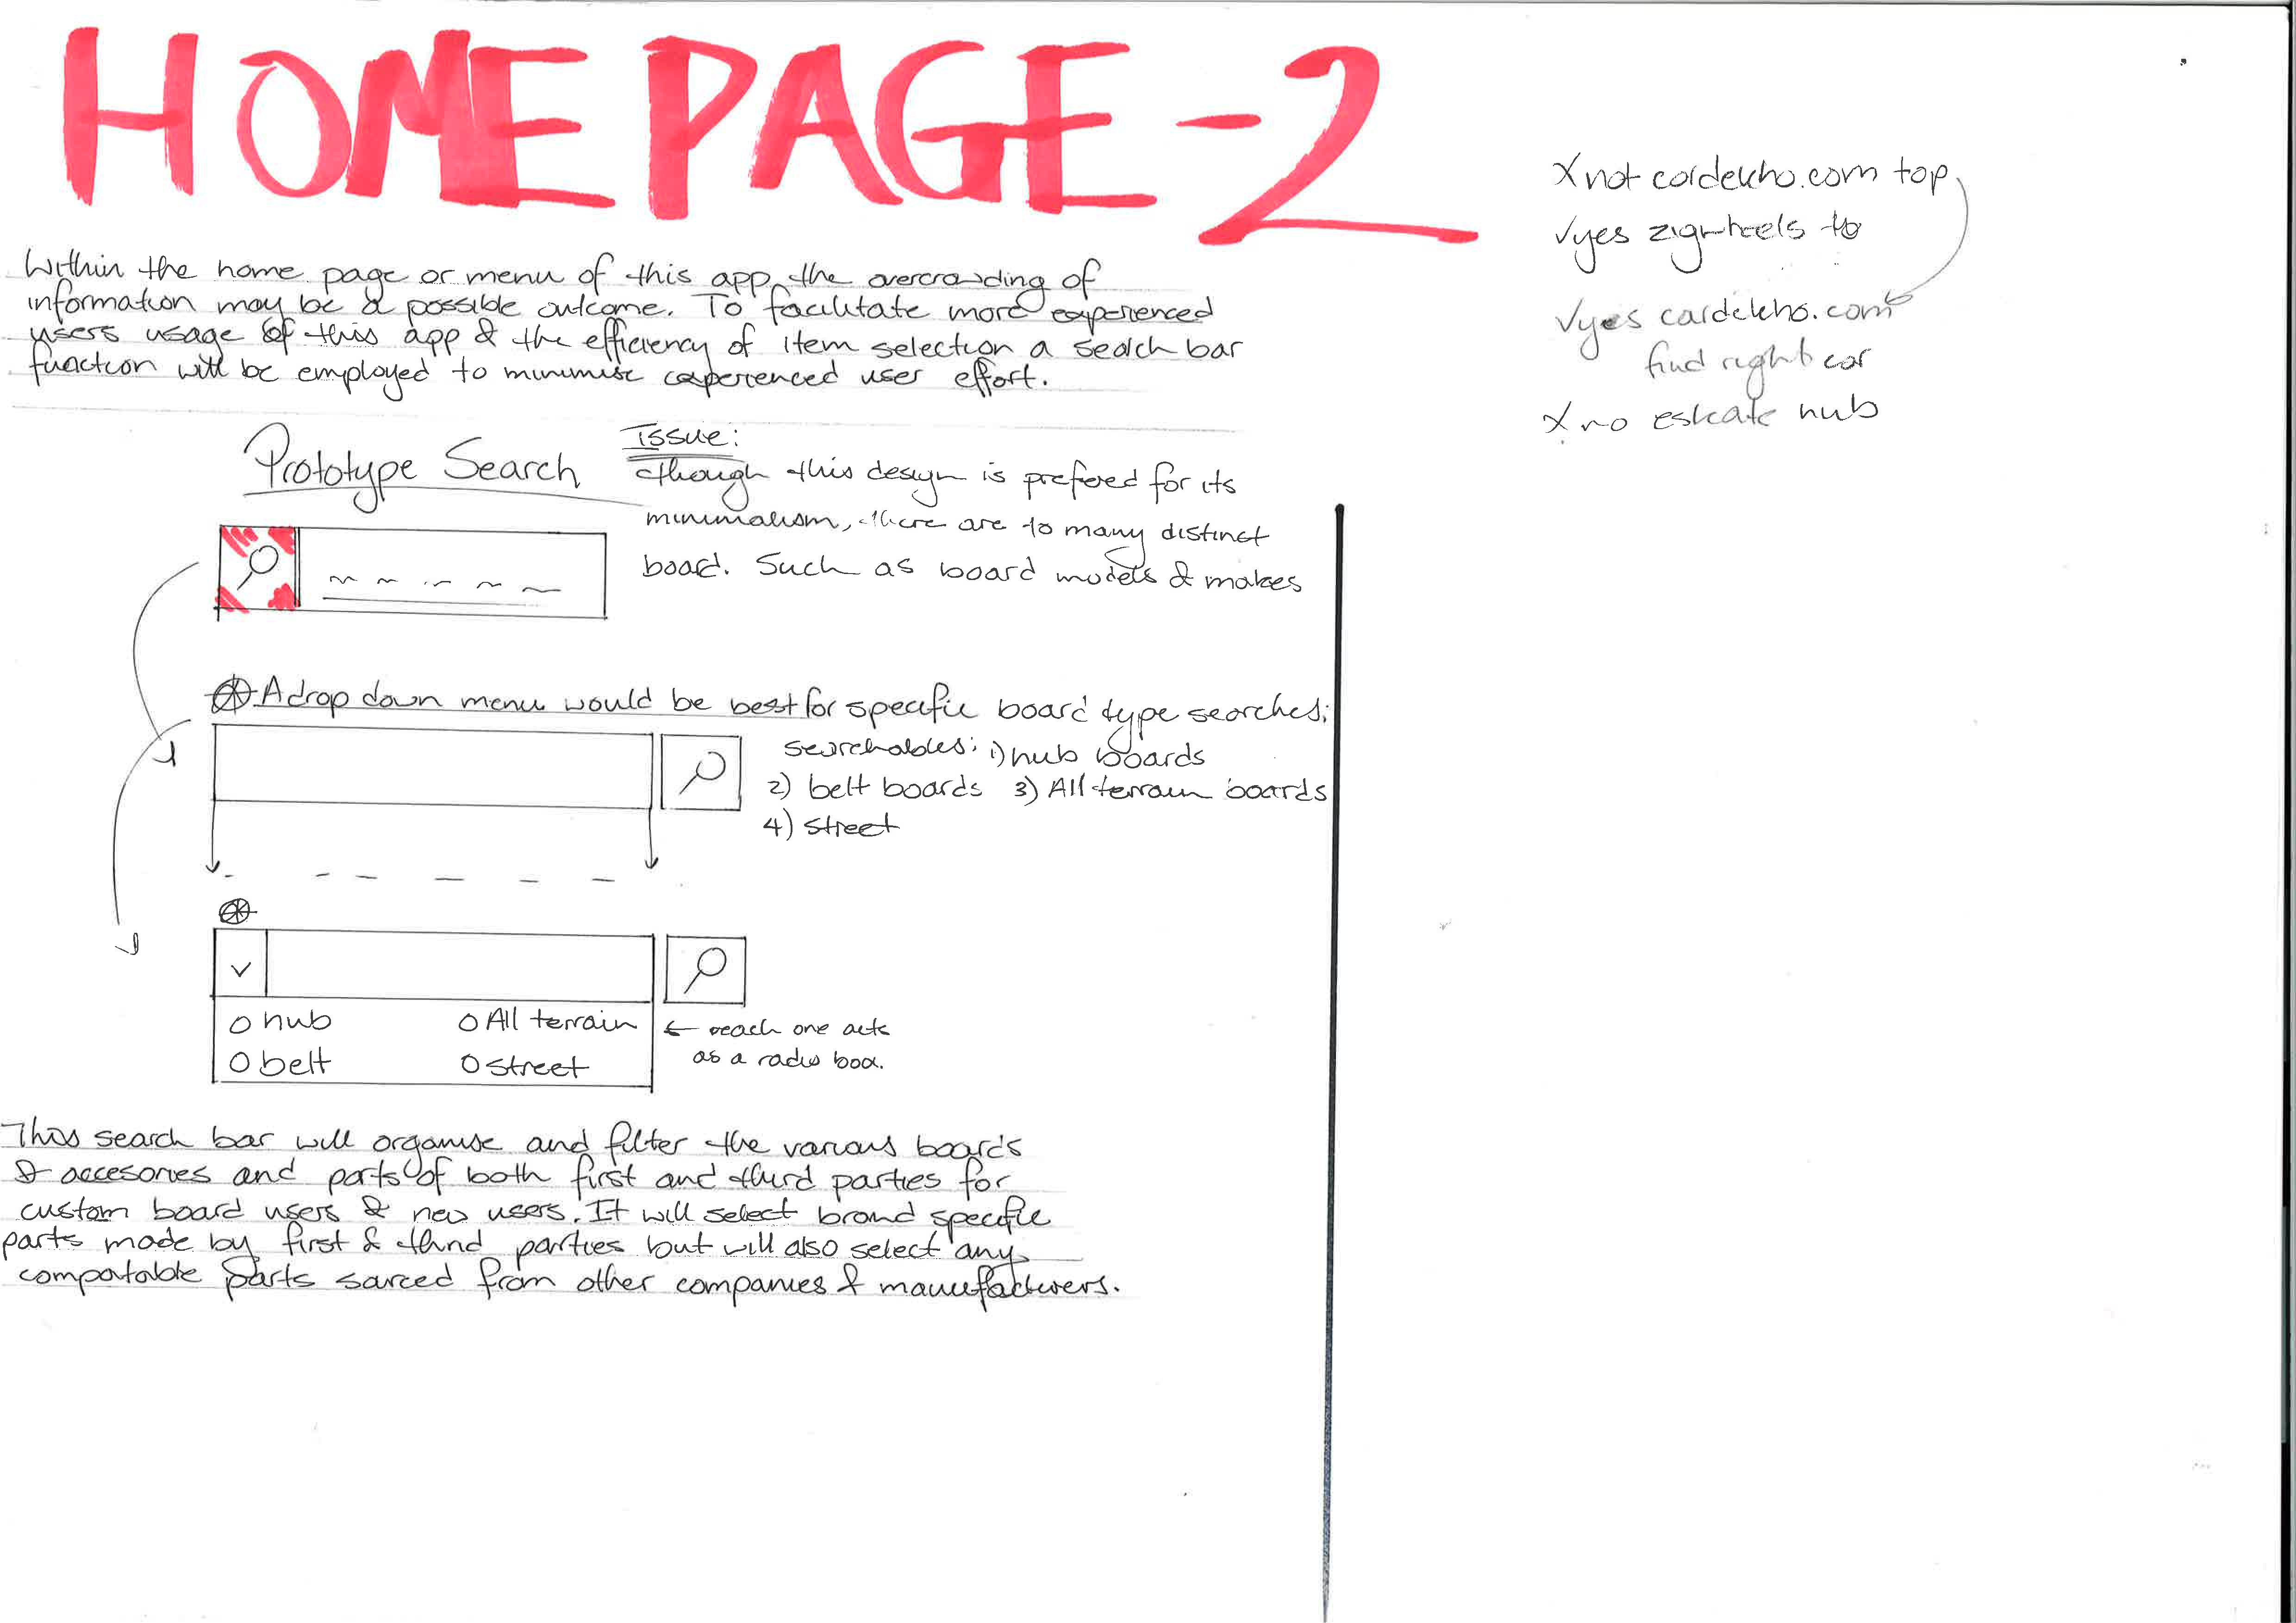 HOME PAGE - 2
Within the home page or menu of this app, the overcrowding of
information may be a possible outcome. To facilitate more experienced
users usage of this app & the efficiency of item selection a search bar
function will be employed to minimise experienced user effort.
Prototype Search
Issue:
though this design is prefered for its
minimalism, there are to many distinct
board. Such as board models & makes
A drop down menu would be best for specific board type searches;
searchables: 1) hub boards
2) belt boards 3) All terrain boards
4) street
hub All terrain
belt street
← each one acts
as a radio box.
This search bar will organise and filter the various boards
& accesories and parts of both first and third parties for
custom board users & new users. It will select brand specific
parts made by first & third parties but will also select any
compatable parts sarced from other companies & manufacturers.
X not cardekho.com top
✓yes zigwheels to
✓yes cardekho.com
find right car
X no eskate hub